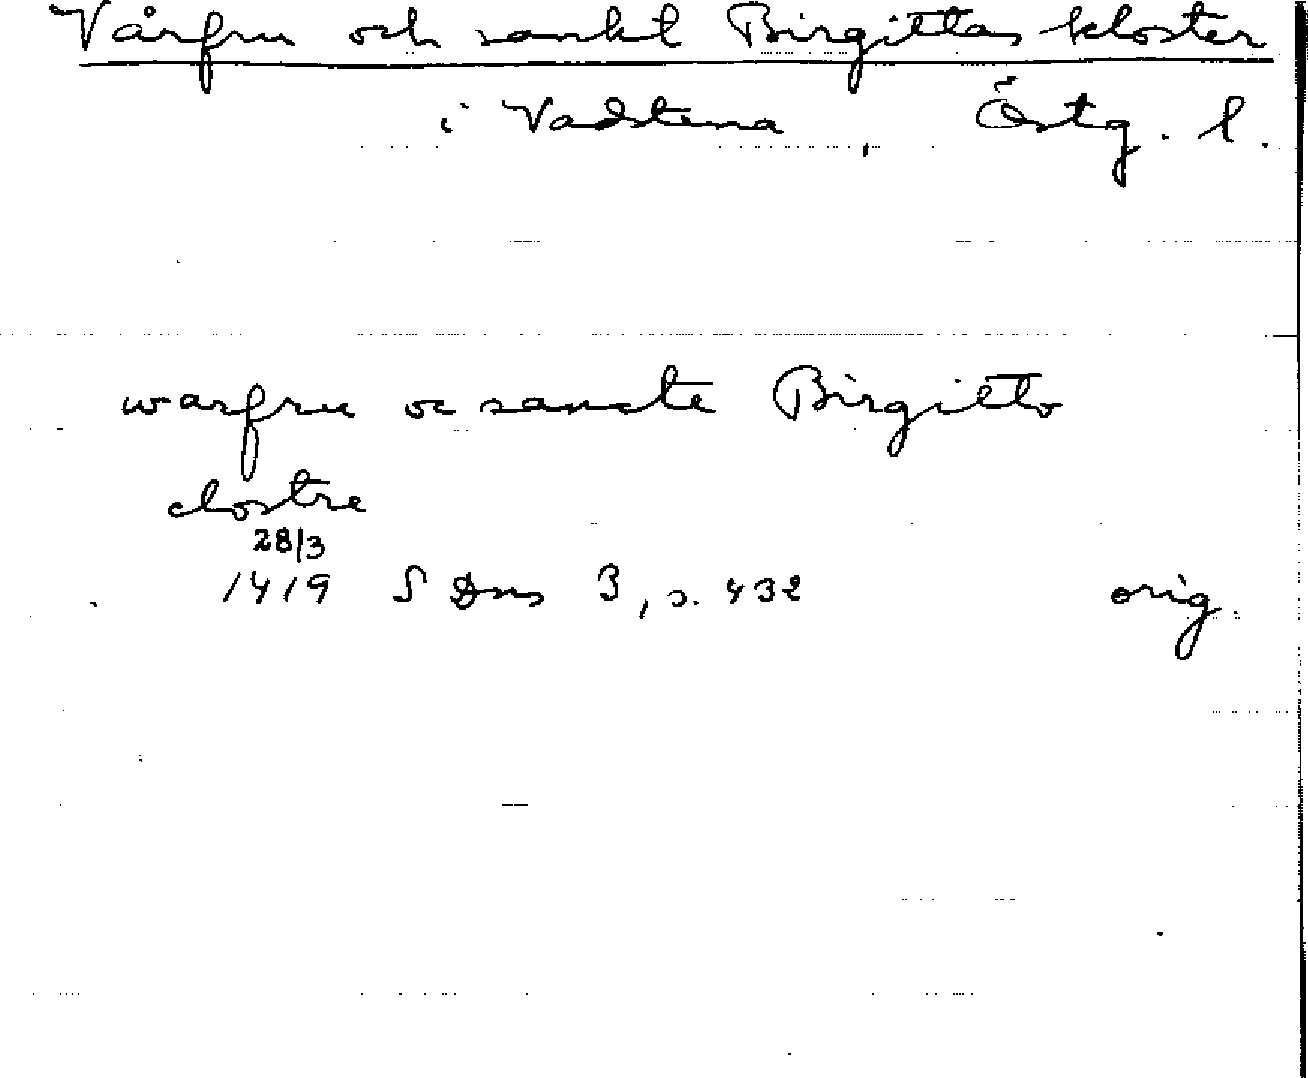 Vårfru och sankt Birgittas kloster
i Vadstena, Östg. l.
warfru oc sancte Birgitto
clostre
28/3
1419 S Dns 3, s. 432 orig.